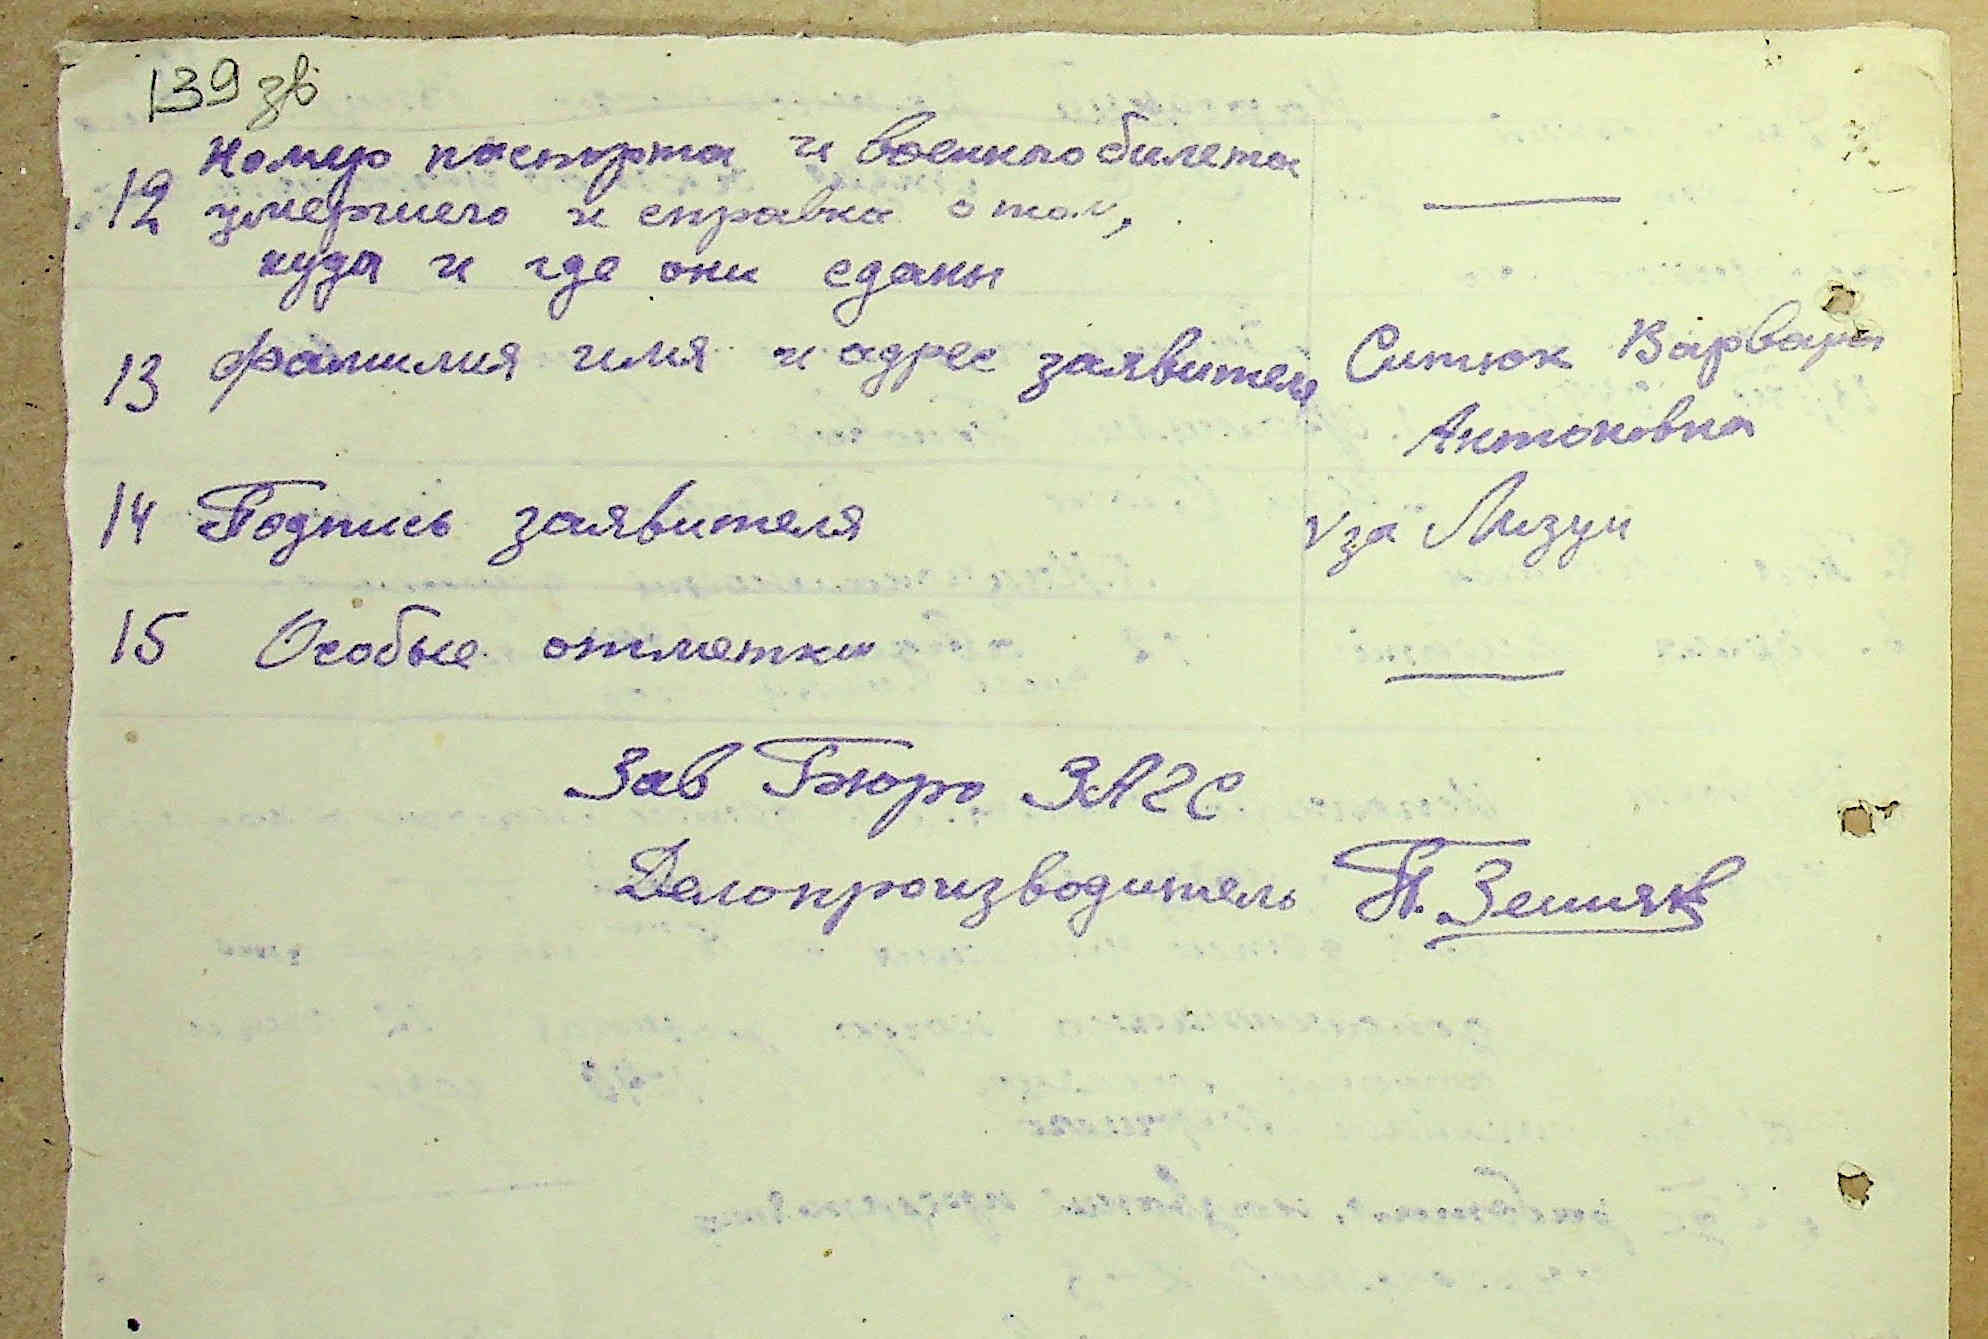 139 зв
Номер паспорта и военного билета
12 умершего и справка о том,
куда и где они сданы
13 Фамилия имя и адрес заявителя Ситюк Варвара
Антоновна
14 Подпись заявителя за Лизун
15 Особые отметки
Зав Бюро ЗАГС
Делопроизводитель П. Земляк